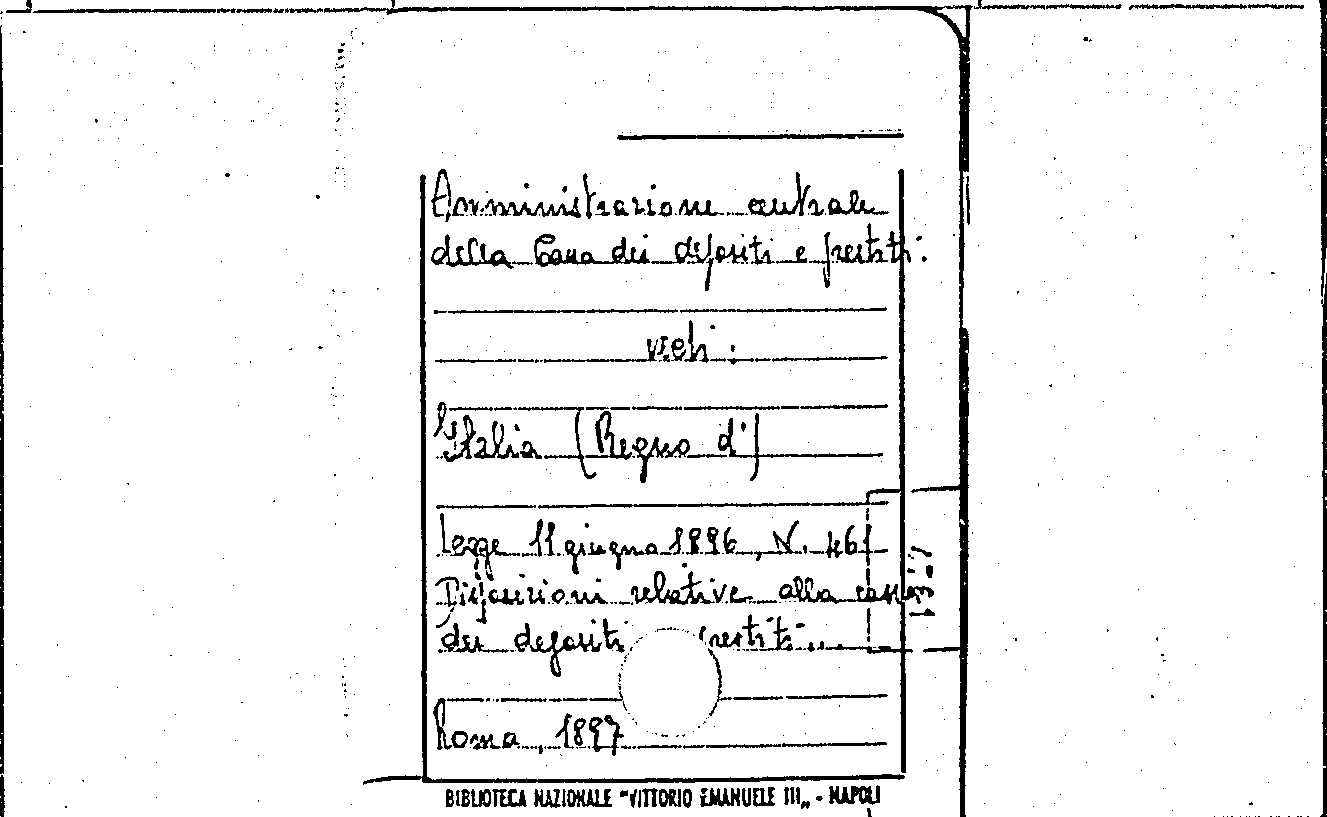 Amministrazione centrale
della Cassa dei depositi e prestiti.
vedi:
Italia (Regno d')
Legge 11 giugno 1896, N. 461
Disposizioni relative alla cassa
dei depositi prestiti...
Roma, 1897
BIBLIOTECA NAZIONALE "VITTORIO EMANUELE III„ - NAPOLI